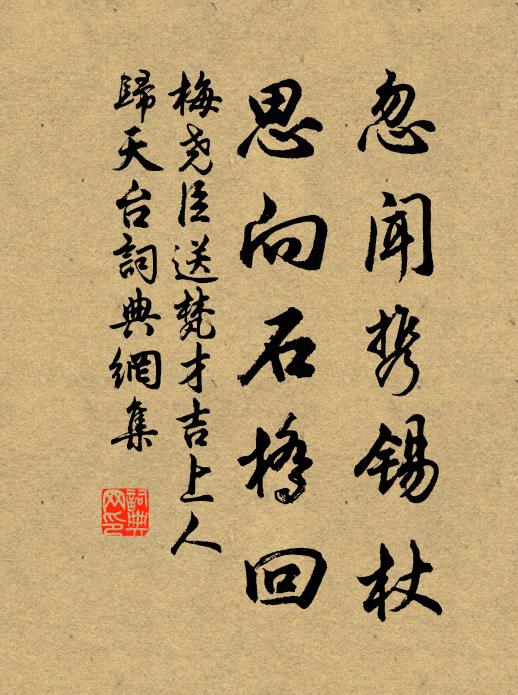 忽闻携锡杖
思向石桥回
梅尧臣送梵才吉上人
歸天台詞典網集
詞典网印